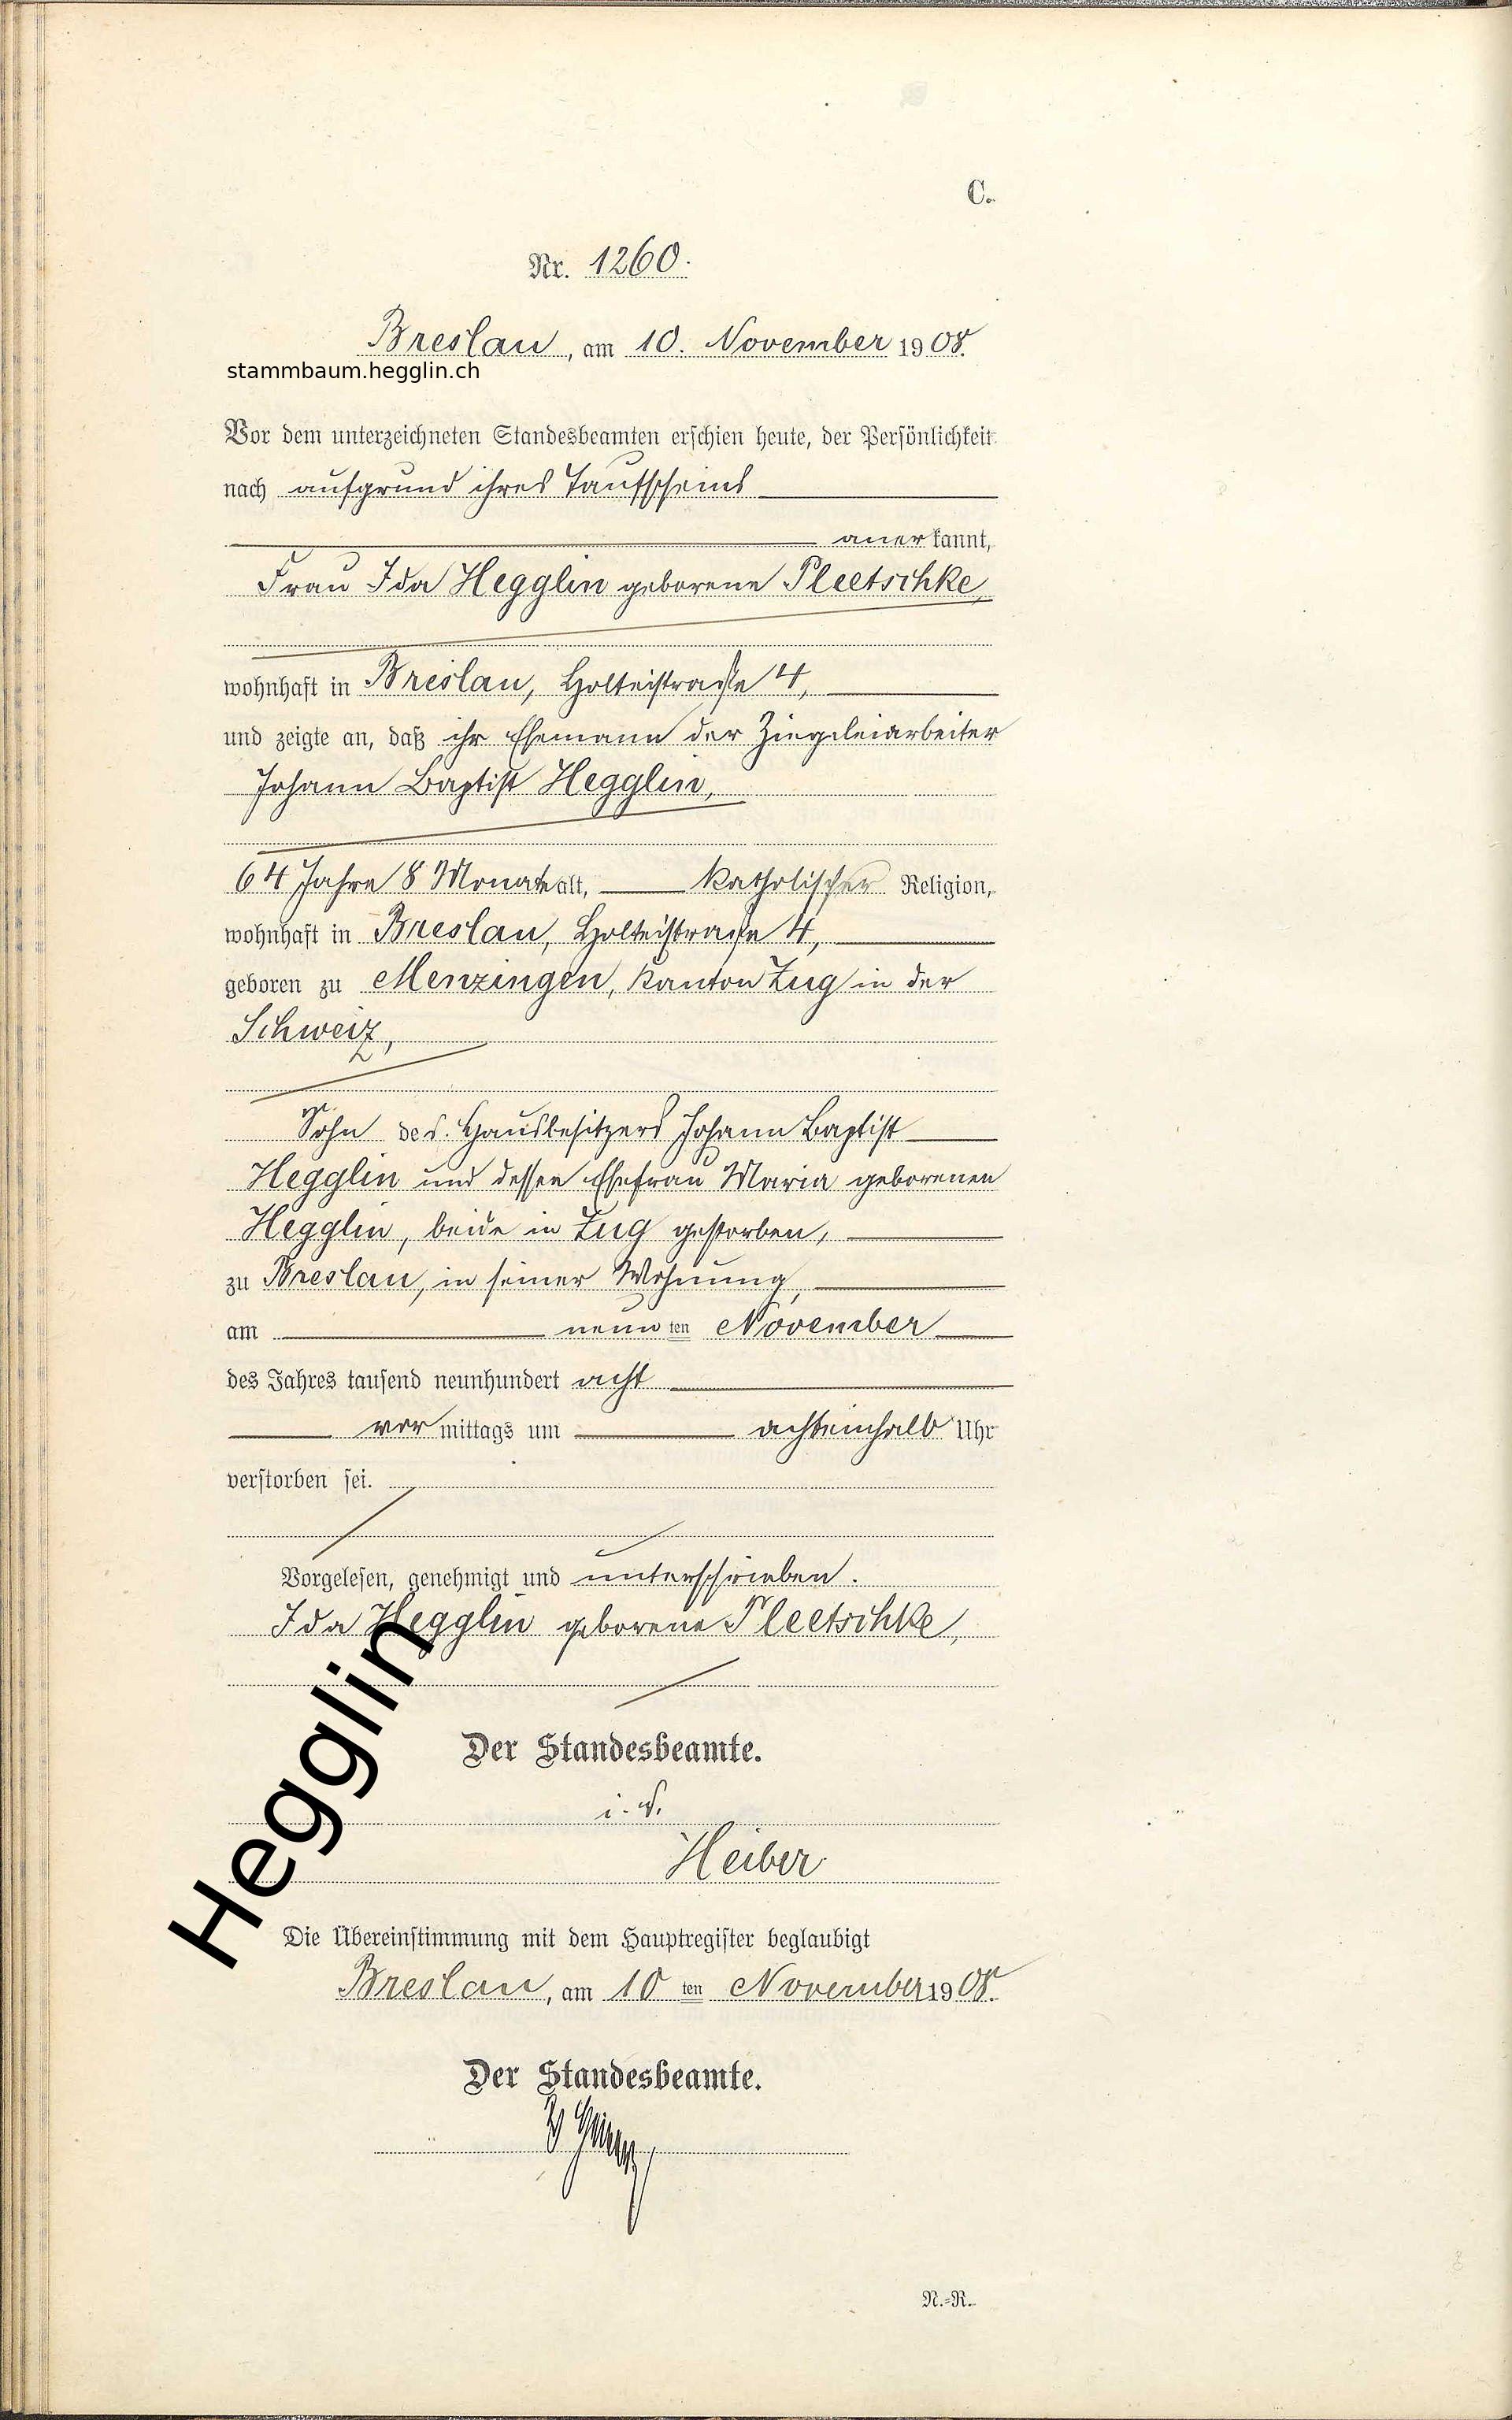 C.
Nr. 1260.
Breslau, am 10. November 1908.
stammbaum.hegglin.ch
Vor dem unterzeichneten Standesbeamten erschien heute, der Persönlichkeit
nach aufgrund ihres Taufscheins
anerkannt,
Frau Ida Hegglin geborene Pleetschke,
wohnhaft in Breslau, Holteistraße 4,
und zeigte an, daß ihr Ehemann der Ziegeleiarbeiter
Johann Baptist Hegglin,
64 Jahre 8 Monate alt, katholischer Religion,
wohnhaft in Breslau, Holteistraße 4,
geboren zu Menzingen, Kanton Zug in der
Schweiz,
Sohn des Hausbesitzers Johann Baptist
Hegglin und dessen Ehefrau Maria geborenen
Hegglin, beide in Zug gestorben,
zu Breslau, in seiner Wohnung,
am neunten November
des Jahres tausend neunhundert acht
vormittags um achteinhalb Uhr
verstorben sei.
Vorgelesen, genehmigt und unterschrieben.
Ida Hegglin geborene Pleetschke,
Hegglin
Der Standesbeamte.
i. V.
Heiber
Die Übereinstimmung mit dem Hauptregister beglaubigt
Breslau, am 10ten November 1908.
Der Standesbeamte.
N.=R.